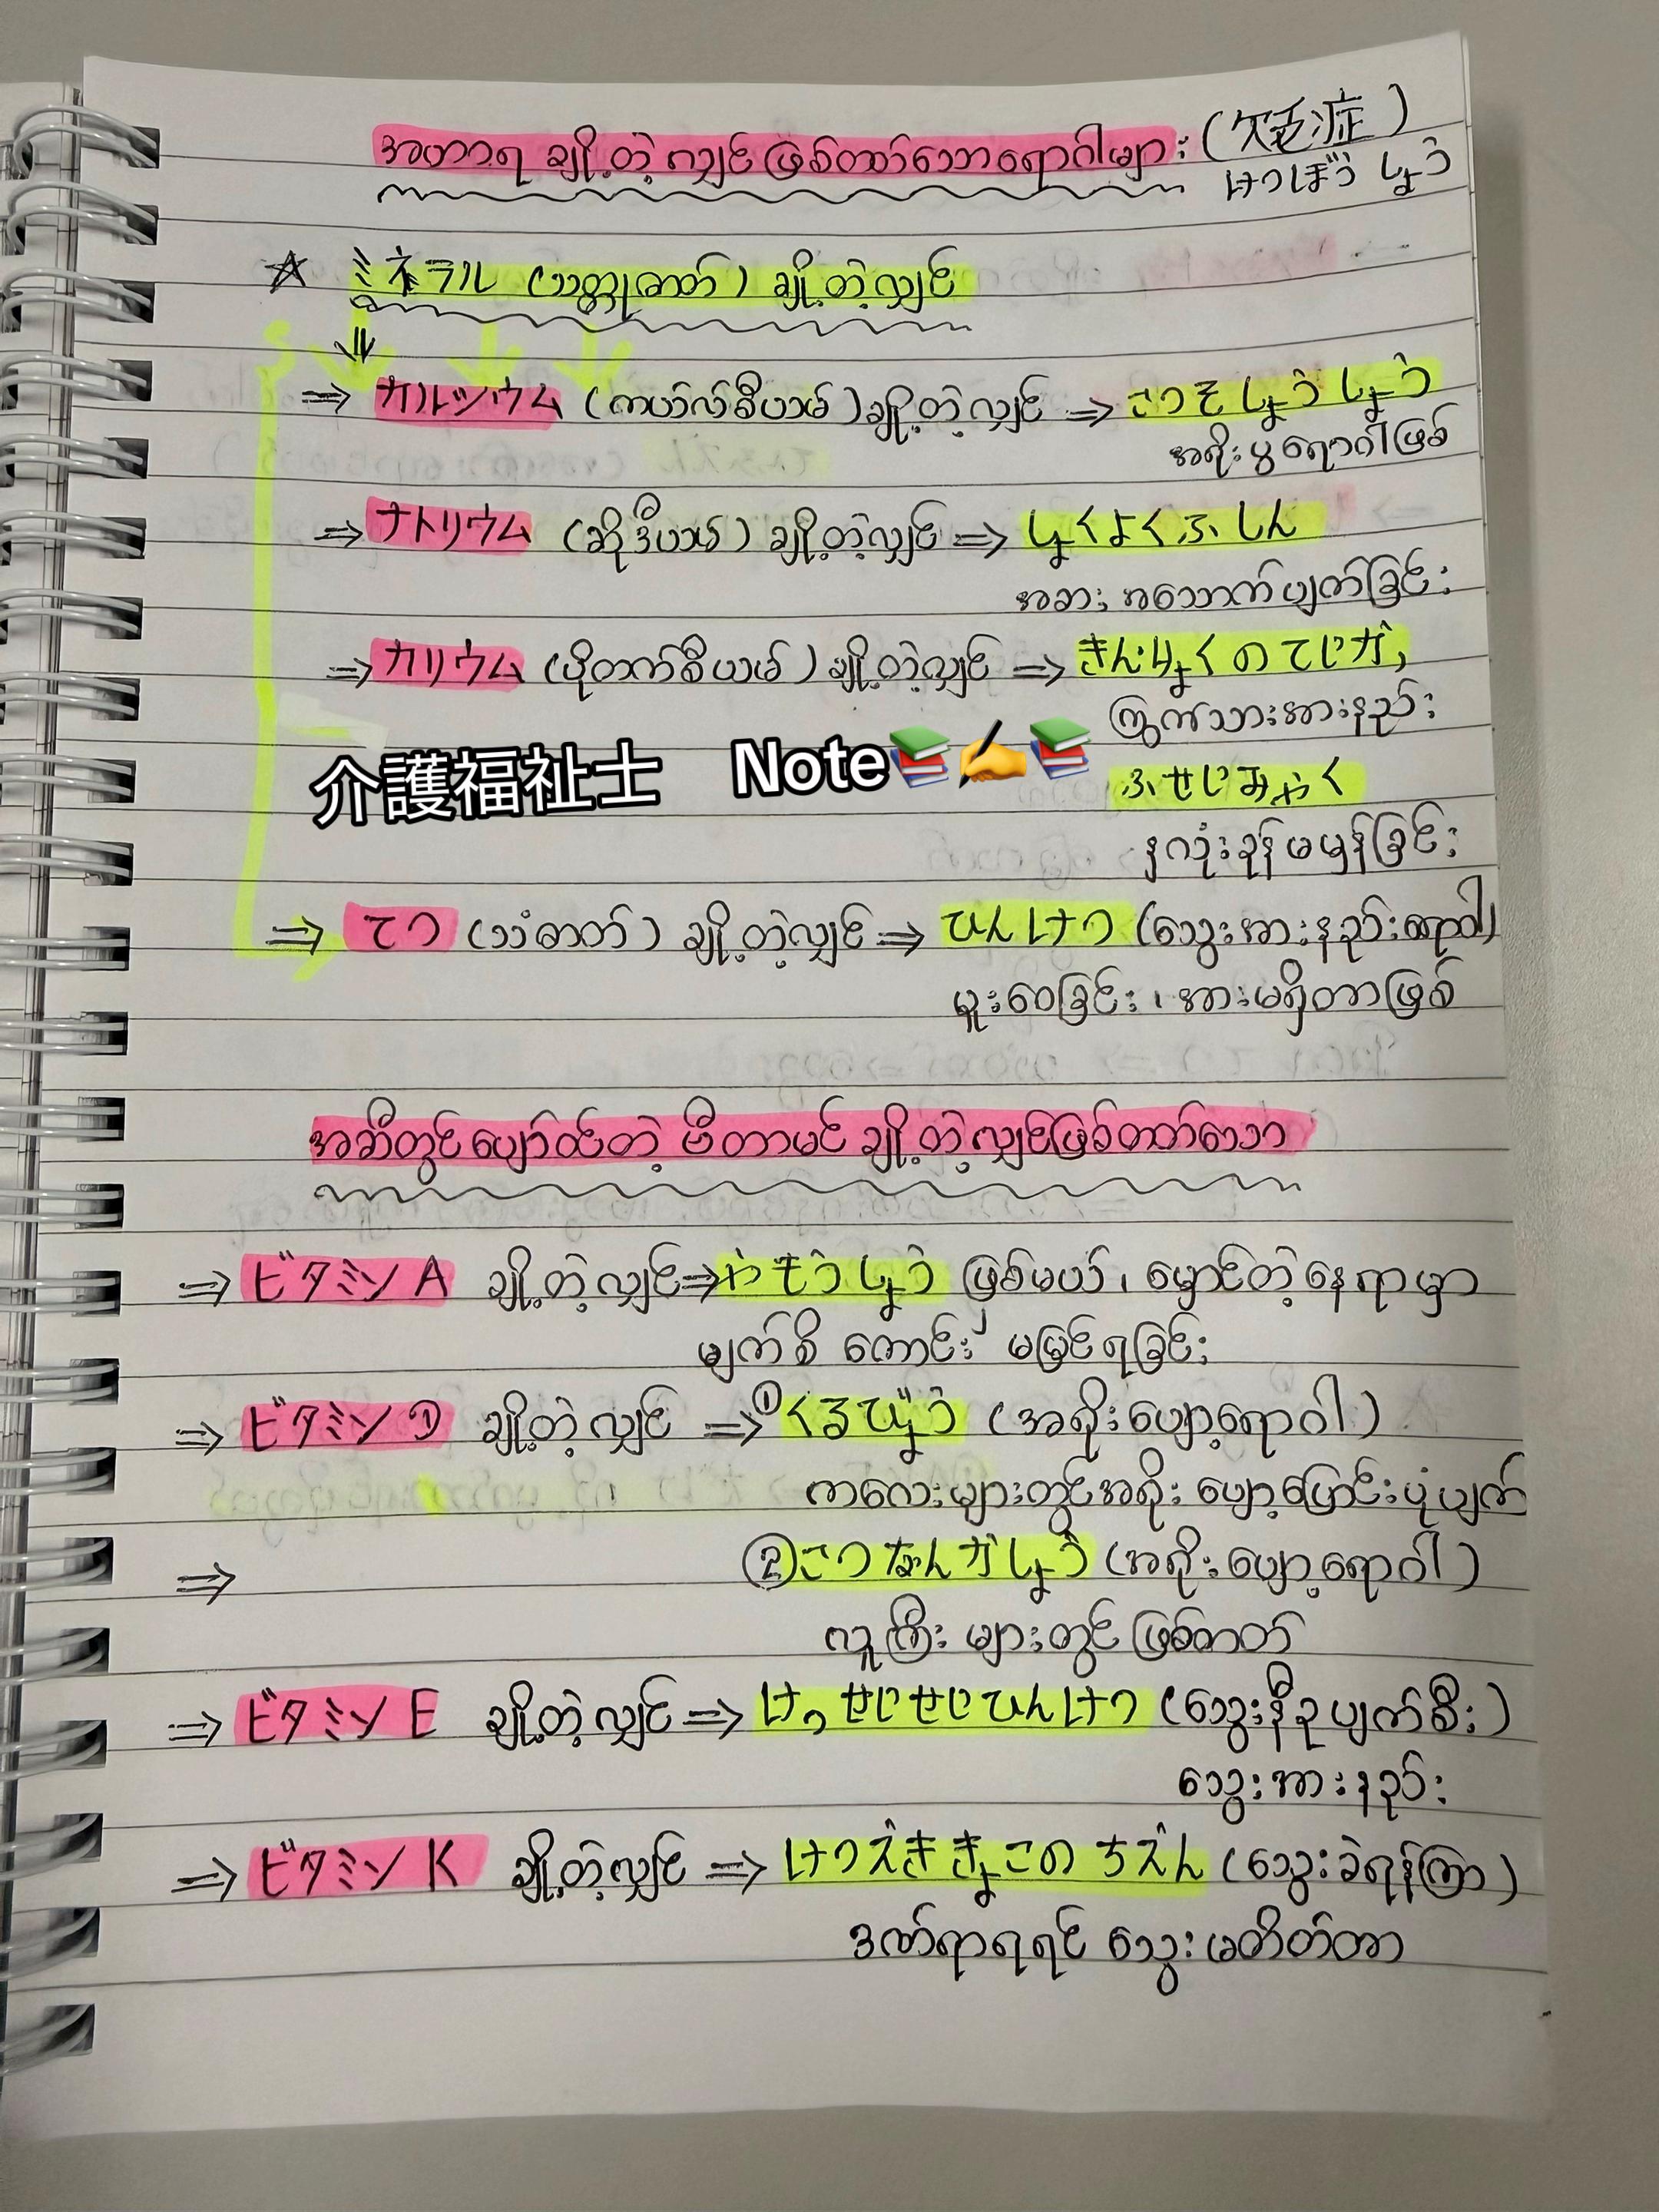 အဟာရ ချို့တဲ့ လျှင် ဖြစ်တတ်သောရောဂါများ (欠乏症)
けつぼう しょう
☆ ミネラル (သတ္တုဓာတ်) ချို့တဲ့လျှင်
⇒ カルシウム (ကယ်လ်စီယမ်) ချို့တဲ့လျှင် ⇒ こつそしょうしょう
အရိုးပွရောဂါဖြစ်
⇒ ナトリウム (ဆိုဒီယမ်) ချို့တဲ့လျှင် ⇒ しょくよくふしん
အစားအသောက်ပျက်ခြင်း
⇒ カリウム (ပိုတက်စီယမ်) ချို့တဲ့လျှင် ⇒ きんりょくのていか,
ကြွက်သားအားနည်း
介護福祉士 Note📚✍📚
ふせいみゃく
နှလုံးခုန်မမှန်ခြင်း
⇒ てつ (သံဓာတ်) ချို့တဲ့လျှင် ⇒ ひんけつ (သွေးအားနည်းရောဂါ)
မူးဝေခြင်း၊ အားမရှိတာဖြစ်
အဆီတွင်ပျော်ဝင်တဲ့ ဗီတာမင် ချို့တဲ့လျှင်ဖြစ်တတ်သော
⇒ ビタミン A ချို့တဲ့လျှင် ⇒ やもうしょう ဖြစ်မယ်၊ မှောင်တဲ့နေရာမှာ
မျက်စိ ကောင်းကောင်း မမြင်ရခြင်း
⇒ ビタミン D ချို့တဲ့လျှင် ⇒ ① くるびょう (အရိုးပျော့ရောဂါ)
ကလေးများတွင်အရိုး ပျော့ပြောင်းပုံပျက်
⇒ ② こつなんかしょう (အရိုးပျော့ရောဂါ)
လူကြီး များတွင် ဖြစ်တတ်
⇒ ビタミン E ချို့တဲ့လျှင် ⇒ けっせいせいひんけつ (သွေးနီဥပျက်စီး)
သွေးအားနည်း
⇒ ビタミン K ချို့တဲ့လျှင် ⇒ けつえききょこのちえん (သွေးခဲရန်ကြာ)
ဒဏ်ရာရရင် သွေးမတိတ်တာ